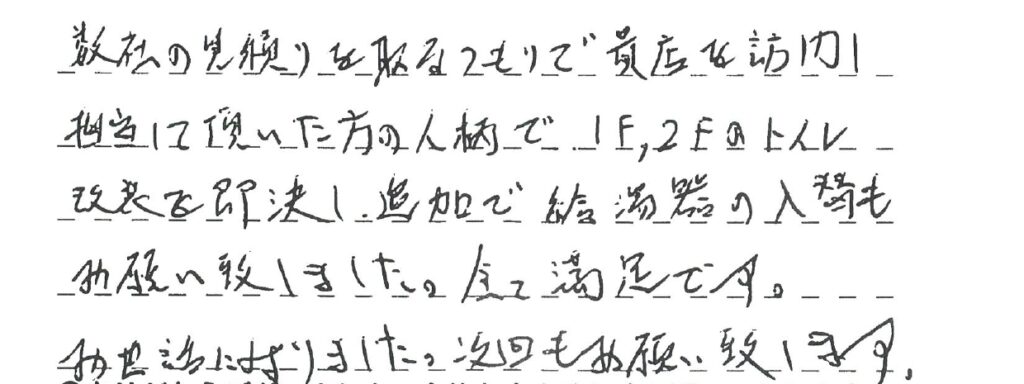 数社の見積りを取るつもりで貴店を訪問し
担当して頂いた方の人柄で 1F,2Fのトイレ
改装を即決し、追加で給湯器の入替も
お願い致しました。全て満足です。
お世話になりました。次回もお願い致します。